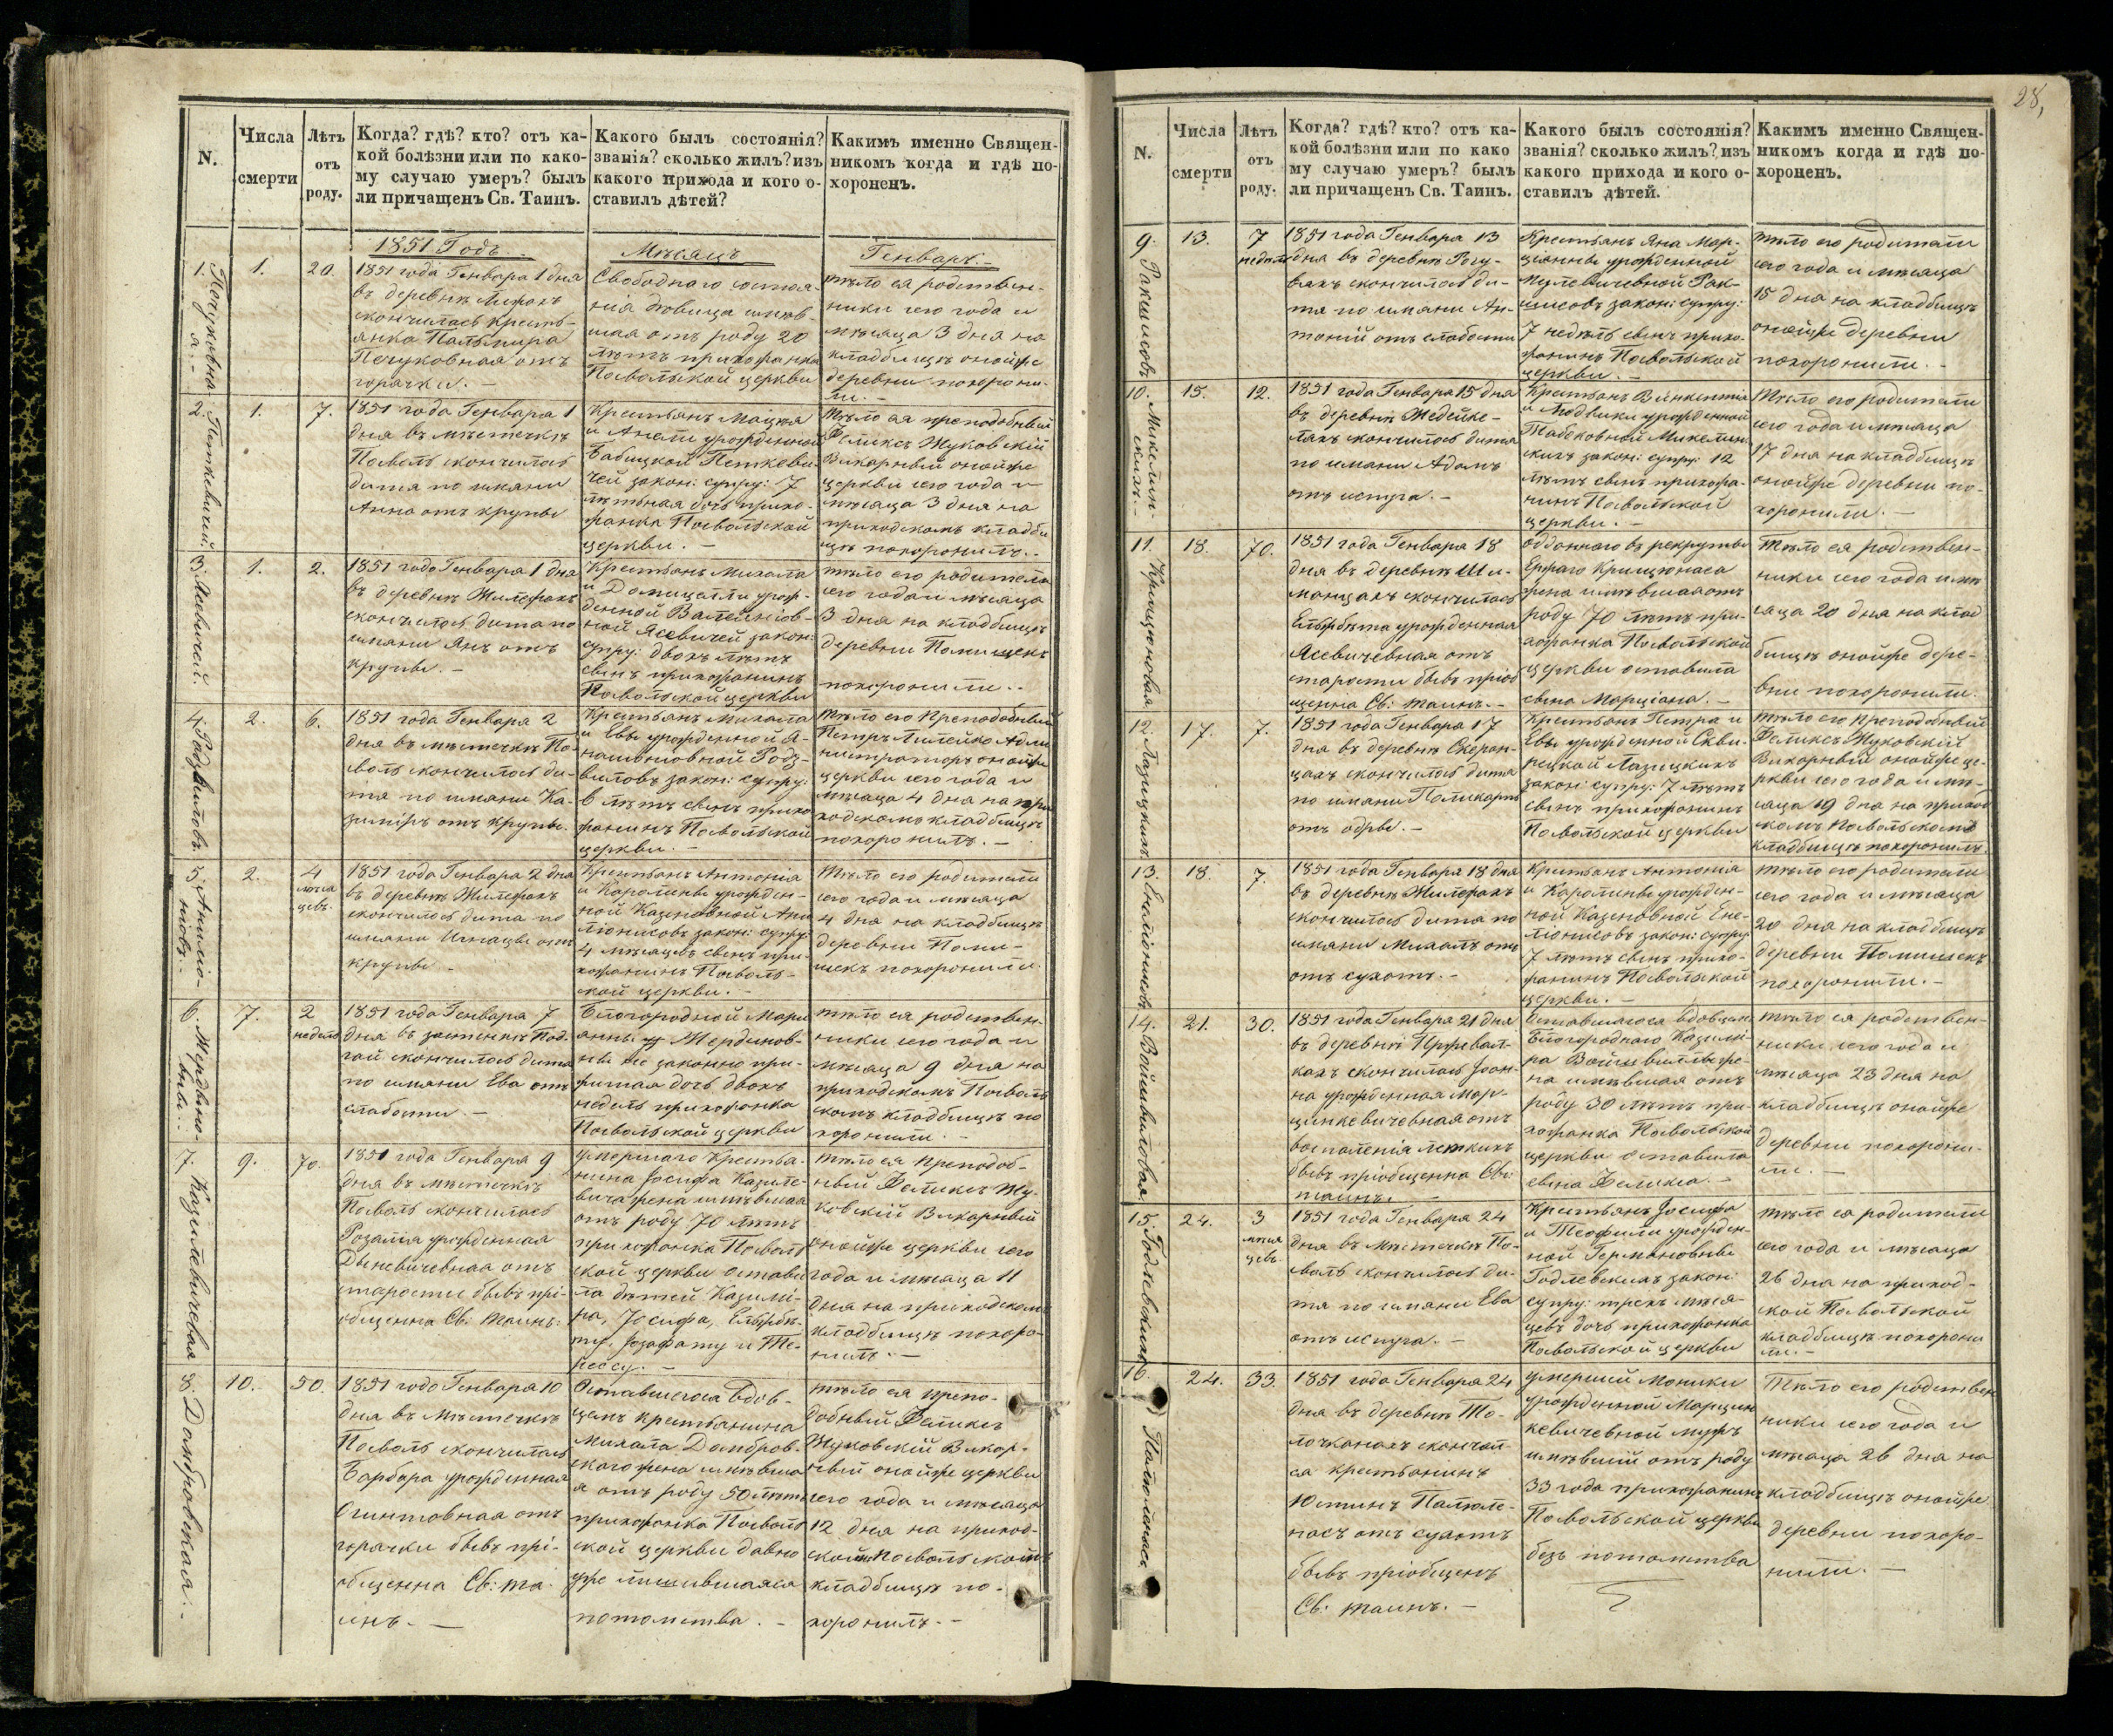 N.
Числа
смерти
Лѣтъ
отъ
роду.
Когда? гдѣ? кто? отъ ка-
кой болѣзни или по како-
му случаю умеръ? былъ
ли причащенъ Св. Таинъ.
Какого былъ состоянія?
званія? сколько жилъ? изъ
какого прихода и кого о-
ставилъ дѣтей?
Какимъ именно Священ-
никомъ когда и гдѣ по-
хороненъ.
1851 Годъ.
Мѣсяцъ
Генварь.
1.
1.
20.
1851 года Генваря 1 дня
въ деревнѣ
скончилась кресть-
янка Пальмира
Печуковная отъ
горячки. —
Свободнаго состоя-
нія дѣвица имѣв-
шая отъ роду 20
лѣтъ прихожанка
Повольской церкви
тѣло ея родствен-
ники сего года и
мѣсяца 3 дня на
кладбищѣ онойже
деревни похорони-
ли. —
2. Петкевичъ
1.
7.
1851 года Генваря 1
дня въ мѣстечкѣ
Поволь скончилось
дитя по имяни
Анна отъ крупы
Крестьянъ Мацея
и Анели урожденной
Бабицкой Петкеви-
чей закон: супру: 7
лѣтняя дочь прихо-
жанка Повольской
церкви. —
тѣло ея преподобный
Феликсъ Жуковскій
Викарный онойже
церкви сего года и
мѣсяца 3 дня на
приходскомъ кладби
щѣ похоронилъ. —
3. Ясевичей.
1.
2.
1851 года Генваря 1 дня
въ деревнѣ Жилефахъ
скончилось дитя по
имяни Янъ отъ
крупы. —
Крестьянъ Михала
и Доницели урож-
денной
ной Ясевичей закон:
супру: двохъ лѣтъ
сынъ прихожанинъ
Повольской церкви
тѣло его родители
сего года и мѣсяца
3 дня на кладбищѣ
деревни
похоронили. —
4. Радвиловъ.
2.
6.
1851 года Генваря 2
дня въ мѣстечкѣ По-
воль скончилось ди-
тя по имяни Ка-
зимиръ отъ крупы.
Крестьянъ Михала
и Евы урожденной Я-
виловъ закон: супру:
6 лѣтъ сынъ прихо
жанинъ Повольской
церкви. —
тѣло его Преподобный
Петръ Лилейко Адми
нистраторъ онойже
церкви сего года и
мѣсяца 4 дня на при
ходскомъ кладбищѣ
похоронилъ. —
5.
2.
4
мѣся
цевъ.
1851 года Генваря 2 дня
въ деревнѣ Жилефахъ
скончилось дитя по
имяни Игнацы отъ
крупы —
Крестьянъ Антонія
и Каролины урожден-
ной Казеновной
закон: супру:
4 мѣсяцевъ сынъ при-
хожанинъ Поволь-
ской церкви. —
тѣло его родители
сего года и мѣсяца
4 дня на кладбищѣ
деревни
похоронили.
6.
7.
2
недѣль
1851 года Генваря 7
дня въ застенкѣ Под-
скончилось дитя
по имяни Ева отъ
слабости. —
Благородной Мари
анны
не законно при-
житая дочь двохъ
недель прихожанка
Повольской церкви
тѣло ея родствен-
ники сего года и
мѣсяца 9 дня на
приходскомъ Поволь
скомъ кладбищѣ по
хоронили. —
7. Казилевичевая
9.
70.
1851 года Генваря 9
дня въ мѣстечкѣ
Поволь скончилась
Розалия урожденная
отъ
старости бывъ прі-
общенна Св: Таинъ.
умершаго Крестья-
нина Іосифа Казиле-
вича жена имѣвшая
отъ роду 70 лѣтъ
прихожанка Поволь
ской церкви остави
ла дѣтей Казимі-
ра, Іосифа, Елизбѣ-
ту, Іозафату и Те-
рессу. —
тѣло ея Преподоб-
ный Феликсъ Жу-
ковскій Викарный
онойже церкви сего
года и мѣсяца 11
дня на приходскомъ
кладбищѣ похоро-
нилъ. —
8. Домбровская.
10.
50.
1851 года Генваря 10
дня въ мѣстечкѣ
Поволь скончилась
Барбара урожденная
Огинтовная отъ
горячки бывъ прі-
общенна Св: та-
инъ. —
Оставшегося вдов-
цемъ крестьянина
Михала Домбров-
скаго жена имѣвша
я отъ роду 50 лѣтъ
прихожанка Поволь
ской церкви давно
уже лишившаяся
потомства. —
тѣло ея препо-
добный Феликсъ
Жуковскій Викар-
ный онойже церкви
сего года и мѣсяца
12 дня на приход-
скомъ Повольскомъ
кладбищѣ по-
хоронилъ. —
28,
N.
Числа
смерти
Лѣтъ
отъ
роду.
Когда? гдѣ? кто? отъ ка-
кой болѣзни или по како
му случаю умеръ? былъ
ли причащенъ Св. Таинъ.
Какого былъ состоянія?
званія? сколько жилъ? изъ
какого прихода и кого о-
ставилъ дѣтей.
Какимъ именно Священ-
никомъ когда и гдѣ по-
хороненъ.
9. Ракшисовъ
13.
7
недѣль
1851 года Генваря 13
дня въ деревнѣ Рогу-
вяхъ скончилось ди-
тя по имяни Ан-
тоній отъ слабости
Крестьянъ Яна Мар-
цианны урожденной
Рак-
шисовъ закон: супру:
7 недѣль сынъ прихо-
жанинъ Повольской
церкви. —
тѣло его родители
сего года и мѣсяца
15 дня на кладбищѣ
онойже деревни
похоронили. —
10.
15.
12.
1851 года Генваря 15 дня
въ деревнѣ Жедейке-
ляхъ скончилось дитя
по имяни Адамъ
отъ испуга. —
Крестьянъ Винкентія
и Людвики урожденной
закон: супру: 12
лѣтъ сынъ прихожа-
нинъ Повольской
церкви. —
тѣло его родители
сего года и мѣсяца
17 дня на кладбищѣ
онойже деревни по-
хоронили. —
11. Крищюновая
18.
70.
1851 года Генваря 18
дня въ деревнѣ Ши-
монцахъ скончилась
Елизбѣта урожденная
Ясевичевная отъ
старости бывъ пріоб
щенна Св: таинъ. —
отданнаго въ рекруты
Крищюнаса
жена имѣвшая отъ
роду 70 лѣтъ при-
хожанка Повольской
церкви оставила
сына Марціана. —
тѣло ея родствен-
ники сего года и мѣ
сяца 20 дня на клад
бищѣ онойже дере-
вни похоронили.
12. Лазицкихъ
17.
7.
1851 года Генваря 17
дня въ деревнѣ
цахъ скончилось дитя
по имяни Поликарпъ
отъ одры. —
Крестьянъ Петра и
Евы урожденной Скви-
рецкой Лазицкихъ
закон: супру: 7 лѣтъ
сынъ прихожанинъ
Повольской церкви
тѣло его Преподобный
Феликсъ Жуковскій
Викарный онойже це-
ркви сего года и мѣ-
сяца 19 дня на приход
скомъ Повольскомъ
кладбищѣ похоронилъ.
13.
18.
7.
1851 года Генваря 18 дня
въ деревнѣ Жилефахъ
скончилось дитя по
имяни Михалъ отъ
отъ сухотъ. —
Крестьянъ Антонія
и Каролины урожден-
ной Казеновной Ене-
ліонисовъ закон: супру:
7 лѣтъ сынъ прихо-
жанинъ Повольской
церкви. —
тѣло его родители
сего года и мѣсяца
20 дня на кладбищѣ
деревни
похоронили. —
14. Войшвиловая
21.
30.
1851 года Генваря 21 дня
въ деревнѣ
кахъ скончилась Іоан-
на урожденная Мар-
цинкевичовная отъ
воспаленія легкихъ
бывъ пріобщенна Св:
таинъ. —
Оставшагося вдовцемъ
Благороднаго Казимі-
ра Войшвиллы же-
на имѣвшая отъ
роду 30 лѣтъ при-
хожанка Повольской
церкви оставила
сына Феликса. —
тѣло ея родствен-
ники сего года и
мѣсяца 23 дня на
кладбищѣ онойже
деревни похорони-
ли. —
15. Годлевскихъ
24.
3
мѣся
цевъ.
1851 года Генваря 24
дня въ мѣстечкѣ По-
воль скончилось ди-
тя по имяни Ева
отъ испуга. —
Крестьянъ Іосифа
и Теофили урожден-
ной Германовны
Годлевскихъ закон:
супру: трехъ мѣся-
цевъ дочь прихожанка
Повольской церкви
тѣло ея родители
сего года и мѣсяца
26 дня на приход-
ской Повольской
кладбищѣ похорони
ли. —
16.
24.
33.
1851 года Генваря 24
дня въ деревнѣ То-
лочканахъ скончал-
ся крестьянинъ
Юстинъ Палюле-
насъ отъ сухотъ
бывъ пріобщенъ
Св: таинъ. —
умершей Моники
урожденной Марцин
кевичевной мужъ
имѣвшій отъ роду
33 года прихожанинъ
Повольской церкви
безъ потомства
тѣло его родствен
ники сего года и
мѣсяца 26 дня на
кладбищѣ онойже
деревни похоро-
нили. —